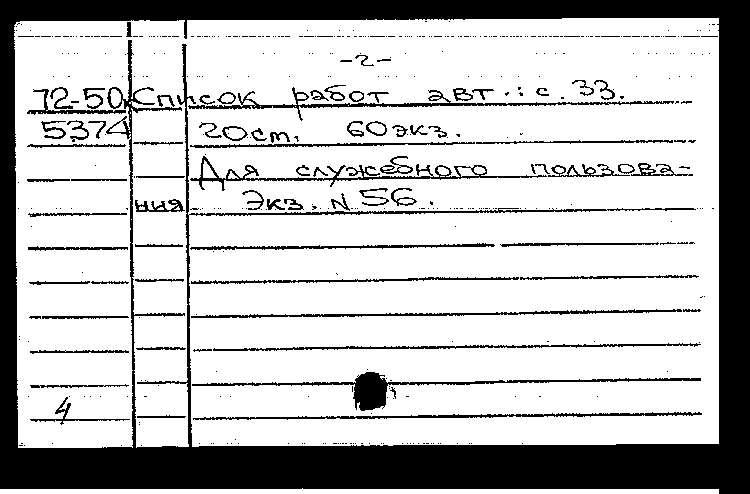 -2-
72-50 Список работ авт.: с. 33.
5374 20 cm. 60 экз.
Для служебного пользова-
ния. Экз. N 56.
4